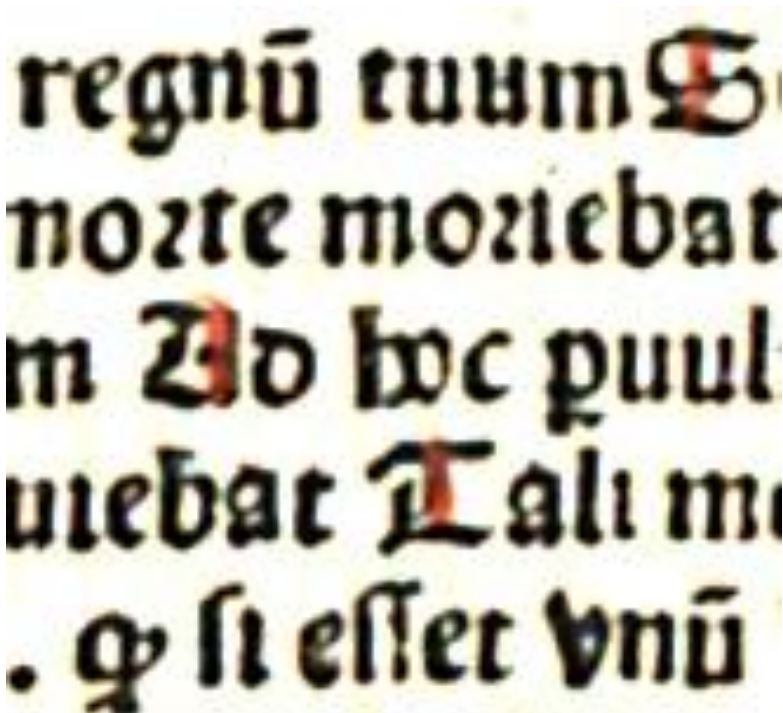 regnū tuum S
morte moriebat
m Ad hoc ꝑuul
uiebat Tali m
. ꝙ si esset vnū